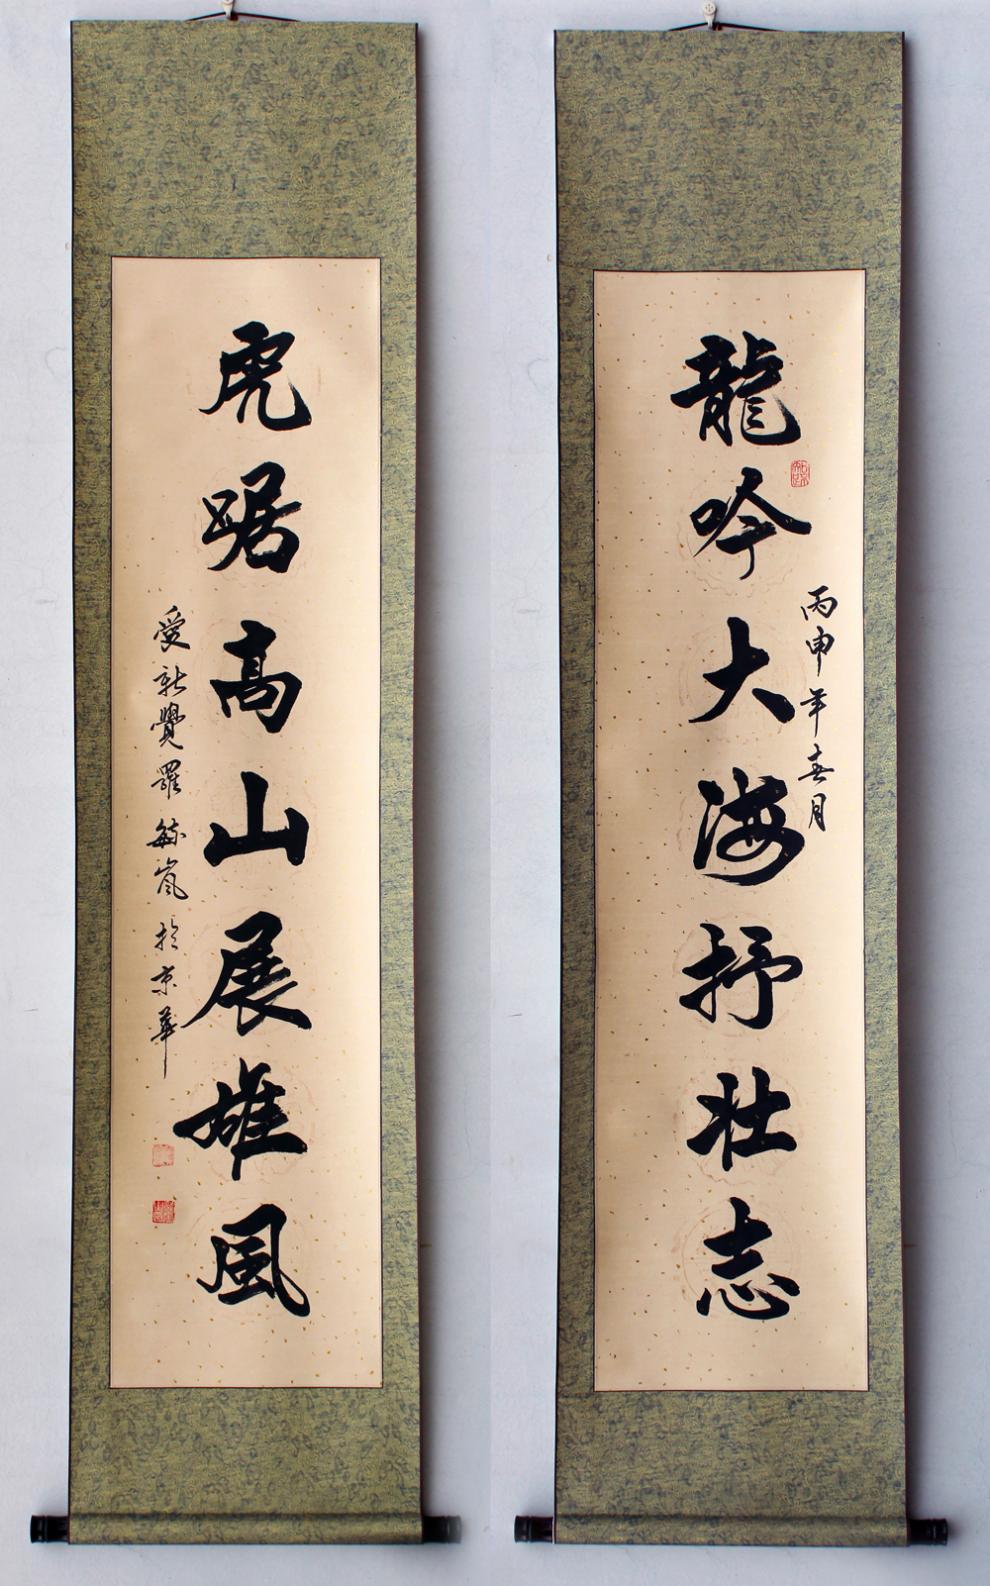 丙申年春月
龍吟大海抒壮志
虎踞高山展雄風
爱新覺羅毓嵐於京華